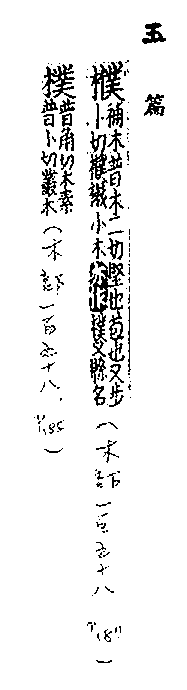 玉篇
樸補木普木二切堅也苞也又步
卜切樕小木樸又縣名(木部一百五十八 P187)
樸普角切木素
普卜切叢木(木部一百五十八、P185)